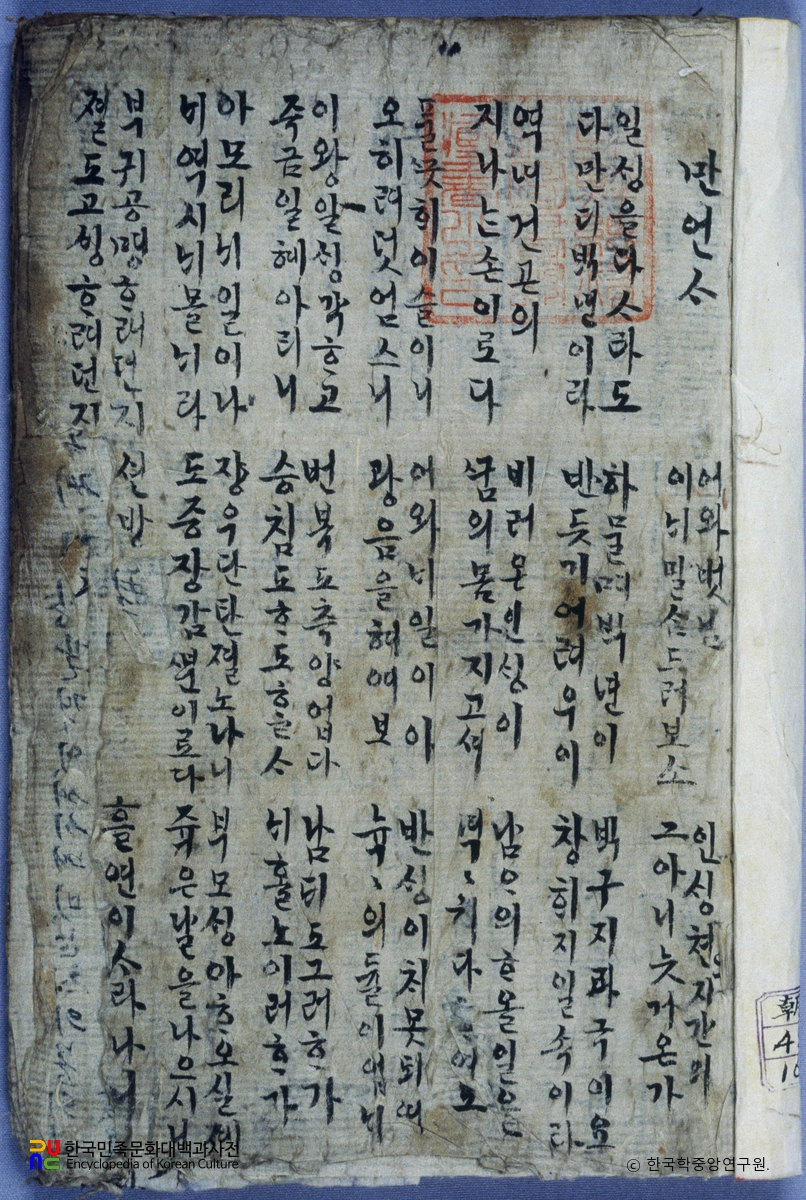 만언ᄉᆞ
어와벗님
이ᄂᆡ말ᄉᆞᆷ드러보소
인ᄉᆡᆼ쳔지간의
그아니늣거온가
일ᄉᆡᆼ을다ᄉᆞ라도
다만ᄃᆡ ᄇᆡᆨ년이라
하물며ᄇᆡᆨ년이
반듯기어려우이
ᄇᆡᆨ구지과극이요
창ᄒᆡ지일속이라
역녀건곤의
지나ᄂᆞᆫ손이로다
비러온인ᄉᆡᆼ이
ᄭᅮᆷ의몸가지고셔
남ᄋᆞ의ᄒᆞ올일은
녁녁히다ᄒᆞ여도
풀ᄭᅳᆺᄒᆡ이슬이니
오히려덧업스니
어와ᄂᆡ일이아
광음을혀여보
반ᄉᆡᆼ이ᄎᆡ못되여
뉵뉵의둘이업ᄂᆡ
이왕일ᄉᆡᆼ각ᄒᆞ고
즉금일혜아리니
번복도측양업다
승침도ᄒᆞ도ᄒᆞᆯᄉᆞ
남ᄃᆡ되그러ᄒᆞᆫ가
ᄂᆡ홀노이러ᄒᆞᆫ가
아모리ᄂᆡ일이나
ᄂᆡ역시ᄂᆡ몰ᄂᆡ라
쟝우단탄졀노나니
도중장감ᄲᅮᆫ이로다
부모ᄉᆡᆼ아ᄒᆞ오실제
쥭은날을나으시니
부귀공명ᄒᆞ려던지
졀도고ᄉᆡᆼᄒᆞ려던지
한국민족문화대백과사전
Encyclopedia of Korean Culture
ⓒ 한국학중앙연구원.